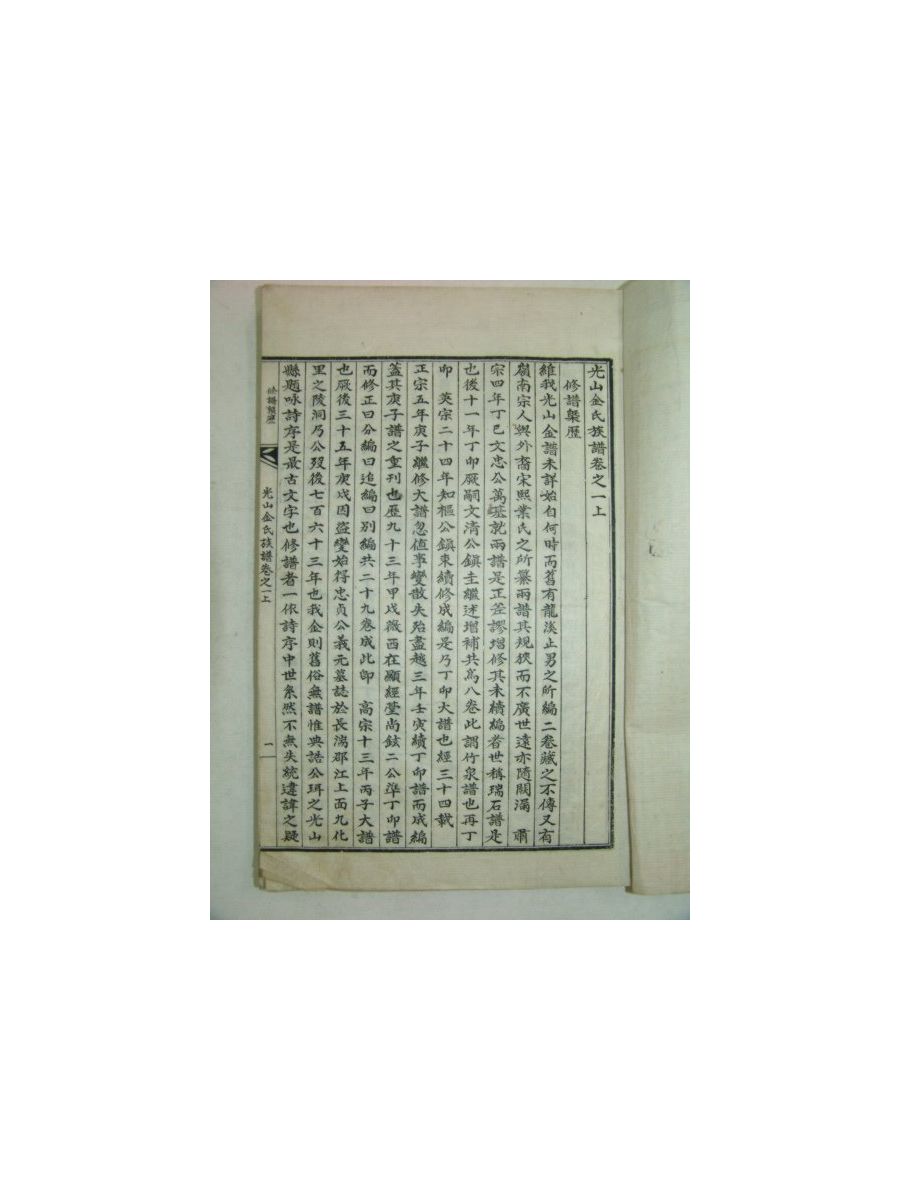 光山金氏族譜卷之一上
修譜槩歷
維我光山金譜未詳始自何時而舊有龍溪止男之所編二卷藏之不傳又有
嶺南宗人與外裔宋熙業氏之所纂兩譜其規狹而不廣世遠亦隨闕漏　肅
宗四年丁巳文忠公萬基就兩譜是正差謬增修其未續編者世稱瑞石譜是
也後十一年丁卯厥嗣文清公鎭圭繼述增補共爲八卷此謂竹泉譜也再丁
卯　英宗二十四年知樞公鎭東續修成編是乃丁卯大譜也經三十四載
正宗五年庚子繼修大譜忽値事變散失殆盡越三年壬寅續丁卯譜而成編
蓋其庚子譜之重刊也歷九十三年甲戌薇西在顯經堂尚鉉二公準丁卯譜
而修正曰分編曰追編曰別編共二十九卷成此卽　高宗十三年丙子大譜
也厥後三十五年庚戌因盜變始得忠貞公義元墓誌於長湍郡江上面九化
里之陵洞乃公歿後七百六十三年也我金則舊俗無譜惟典誥公珥之光山
縣題咏詩序是最古文字也修譜者一依詩序中世系然不無失統違諱之疑
修譜槩歷
光山金氏族譜卷之一上
一